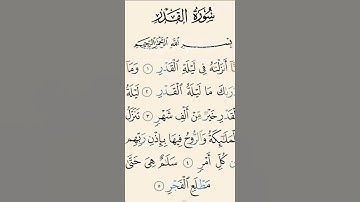 سُورَةُ القَدْرِ
بِسْمِ اللَّهِ الرَّحْمَٰنِ الرَّحِيمِ
أَنزَلْنَٰهُ فِى لَيْلَةِ الْقَدْرِ ١ وَمَا
رَىٰكَ مَا لَيْلَةُ الْقَدْرِ ٢ لَيْلَةُ
قَدْرِ خَيْرٌ مِّنْ أَلْفِ شَهْرٍ ٣ تَنَزَّلُ
لْمَلَٰٓئِكَةُ وَالرُّوحُ فِيهَا بِإِذْنِ رَبِّهِم
ن كُلِّ أَمْرٍ ٤ سَلَٰمٌ هِىَ حَتَّىٰ
مَطْلَعِ الْفَجْرِ ٥